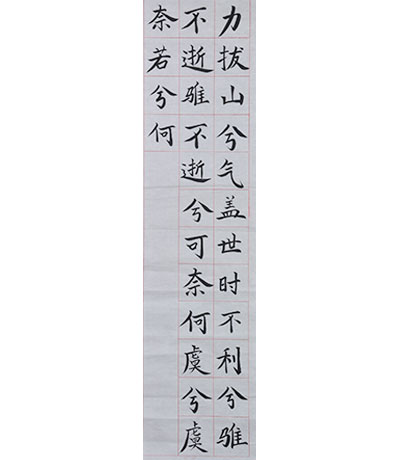 力拔山兮气盖世时不利兮骓
不逝骓不逝兮可奈何虞兮虞
奈若兮何